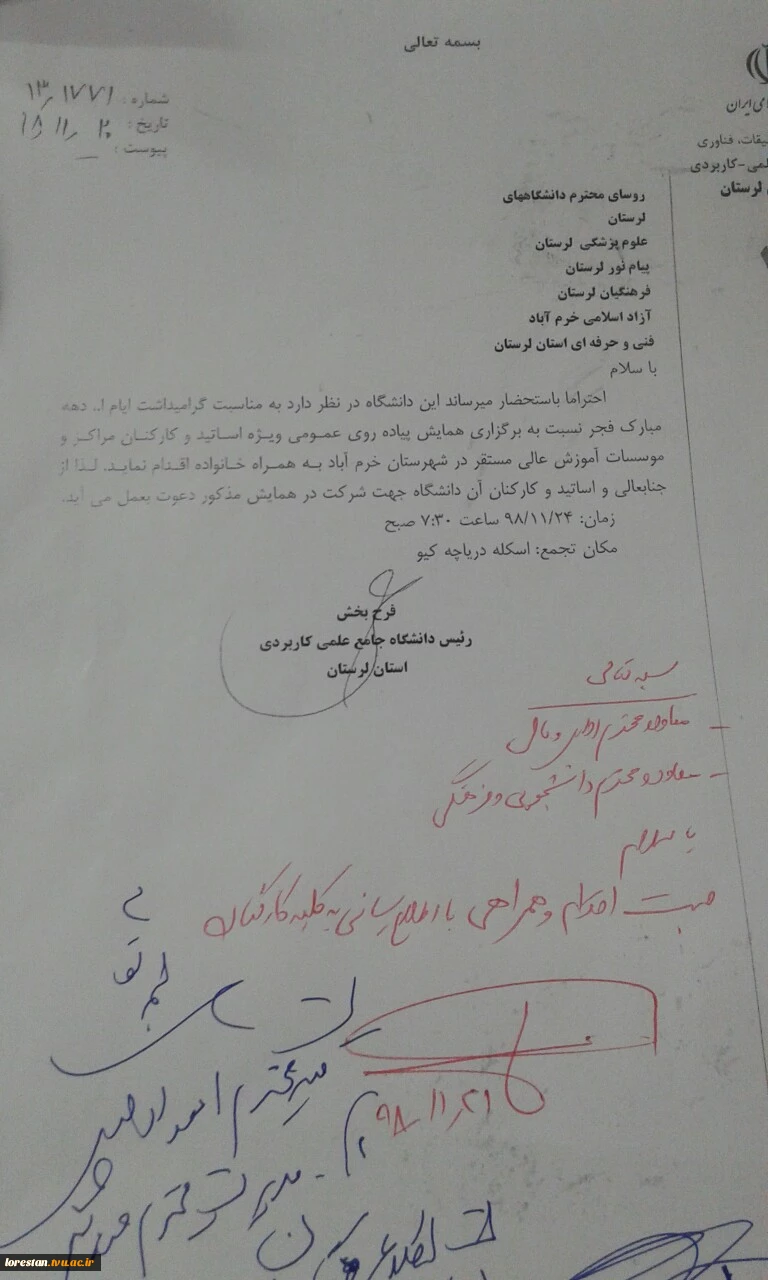 بسمه تعالی
شماره: ۱۳/۱۷۷۱
تاریخ: ۹۸/۱۱/۲۰
پیوست:
ای ایران
یقات، فناوری
لمی-کاربردی
لرستان
روسای محترم دانشگاههای
لرستان
علوم پزشکی لرستان
پیام نور لرستان
فرهنگیان لرستان
آزاد اسلامی خرم آباد
فنی و حرفه ای استان لرستان
با سلام
احتراما باستحضار میرساند این دانشگاه در نظر دارد به مناسبت گرامیداشت ایام ا.. دهه
مبارک فجر نسبت به برگزاری همایش پیاده روی عمومی ویژه اساتید و کارکنان مراکز و
موسسات آموزش عالی مستقر در شهرستان خرم آباد به همراه خانواده اقدام نماید. لذا از
جنابعالی و اساتید و کارکنان آن دانشگاه جهت شرکت در همایش مذکور دعوت بعمل می آید.
زمان: ۹۸/۱۱/۲۴ ساعت ۷:۳۰ صبح
مکان تجمع: اسکله دریاچه کیو
فرح بخش
رئیس دانشگاه جامع علمی کاربردی
استان لرستان
بسمه تعالی
- معاونت محترم اداری و مالی
- معاونت محترم دانشجویی و فرهنگی
با سلام
جهت اقدام و همراهی با اطلاع رسانی به کلیه کارکنان
۹۸/۱۱/۲۱
مدیر محترم امور اداری
lorestan.tvu.ac.ir